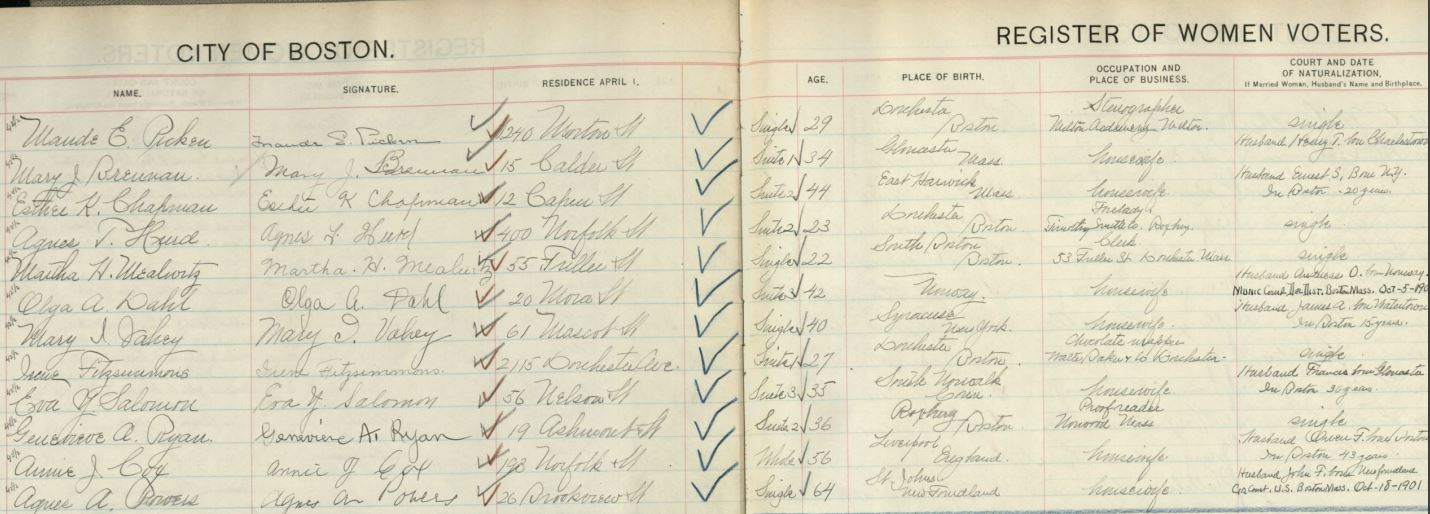 CITY OF BOSTON.
REGISTER OF WOMEN VOTERS.
NAME. SIGNATURE. RESIDENCE APRIL 1. AGE. PLACE OF BIRTH. OCCUPATION AND PLACE OF BUSINESS. COURT AND DATE OF NATURALIZATION.
If Married Woman, Husband's Name and Birthplace.
Dorchester Stenographer
Maude E. Picken Maude E. Picken 240 Morton St Single 29 Boston Milton Academy Milton. single
Gloucester Husband Henry T. born Charlestown
Mary J. Brennan. Mary J. Brennan 15 Calder St Suite 1 34 Mass. housewife.
East Harwich Husband Ernest S, Born N.Y.
Esther K. Chapman Esther K Chapman 12 Capen St Suite 2 44 Mass. housewife. In Boston 20 years.
Dorchester Forelady
Agnes T. Hurd. Agnes T. Hurd 400 Norfolk St Suite 2 23 Boston Timothy Smith Co. Roxbury. single
South Boston Clerk.
Martha H. Mealwitz Martha. H. Mealwitz 55 Fuller St Single 22 Boston. 53 Fuller St Dorchester Mass single
Husband Andreas O. born Norway.
Olga A. Dahl Olga A. Dahl 20 Mora St Suite 3 42 Norway. housewife Boston Mass. Oct-5-190
Syracuse Husband James A. born Watertown
Mary I. Vahey Mary I. Vahey 61 Mascot St Single 40 New York. housewife. In Boston 15 years.
Dorchester Chocolate wrapper
Irene Fitzsimmons Irene Fitzsimmons. 2115 Dorchester Ave. Suite 1 27 Boston. Walter Baker & Co Dorchester single
South Norwalk Husband Francis born Gloucester
Eva Y. Salomon Eva Y. Salomon 56 Nelson St Suite 3 35 Conn. housewife In Boston 30 years.
Roxbury Proofreader
Genevieve A. Ryan. Genevieve A. Ryan 19 Ashmont St Suite 2 36 Boston. Norwood Mass. single
Liverpool Husband Owen F. born Boston
Annie J. Cox Annie J Cox 193 Norfolk St Whole 56 England. housewife. In Boston 43 years.
St. Johns Husband John F. born Newfoundland
Agnes A. Powers Agnes A. Powers 26 Brookview St Single 64 Newfoundland housewife. Cir. Court, U.S. Boston Mass. Oct-18-1901